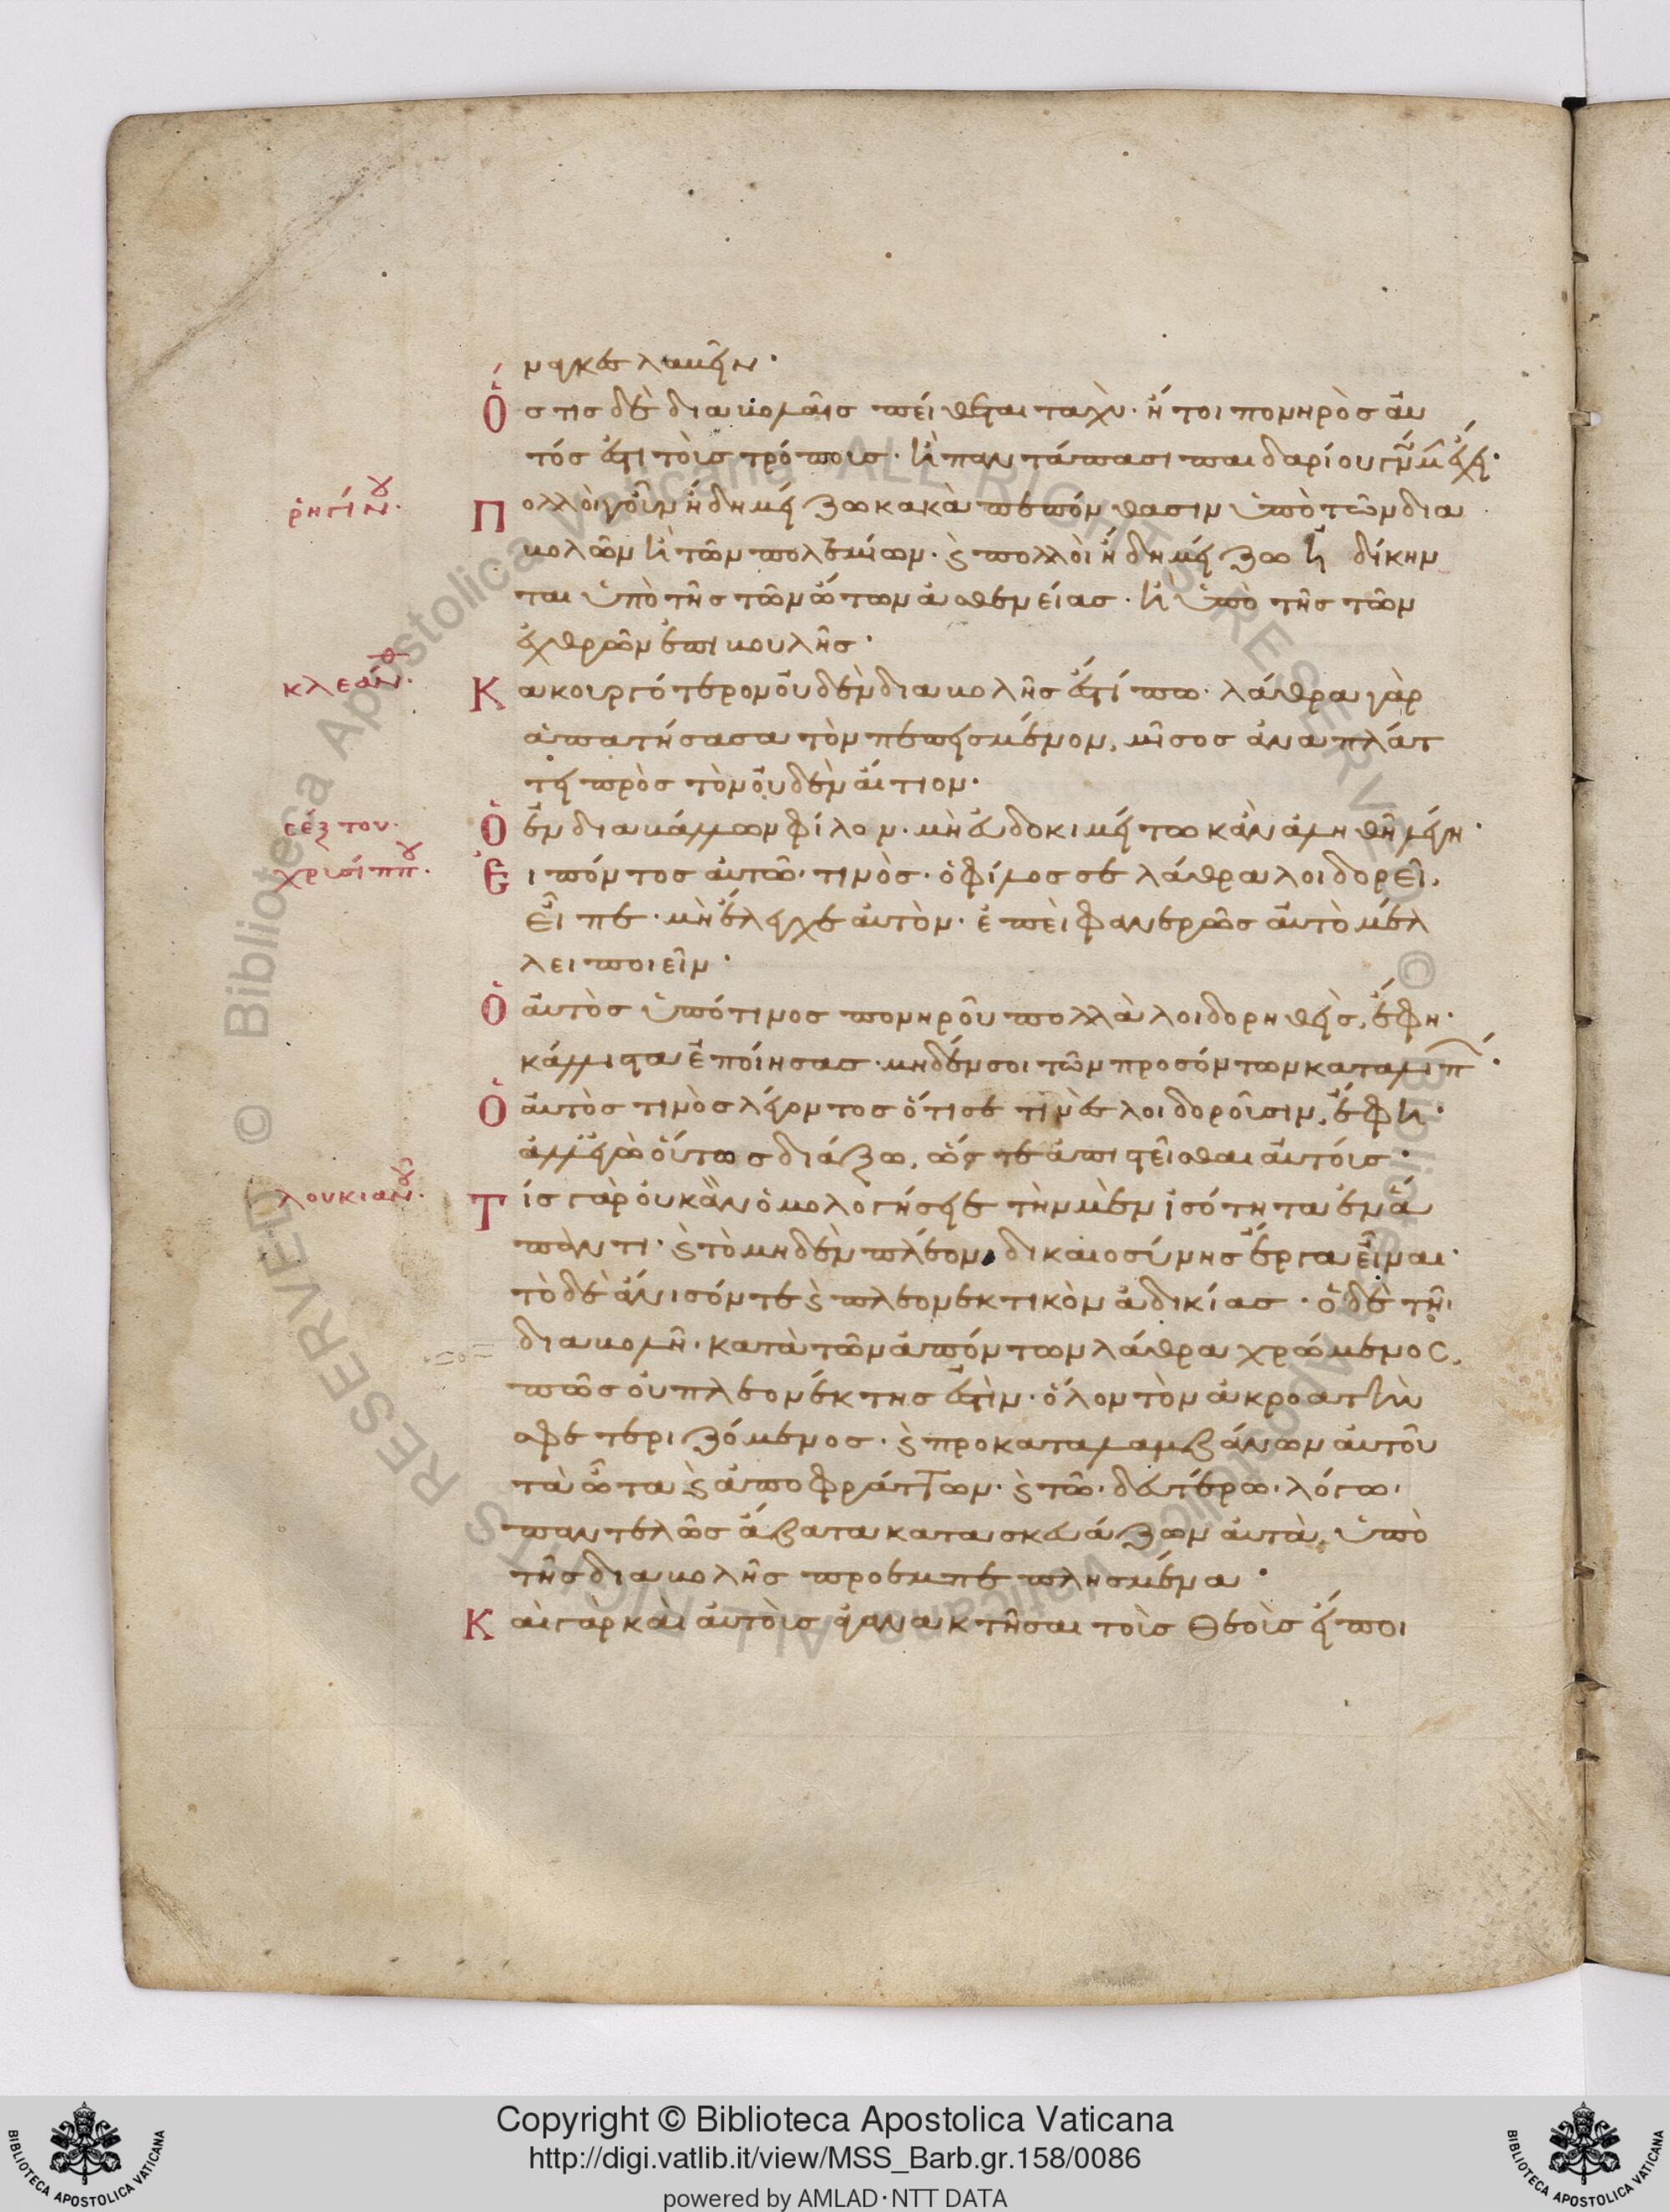 νας καὶ λαβεῖν·
Ὅστις δὲ διαβολαῖσ πείθεται ταχὺ· ἤτοι πονηρὸσ αὐ
τόσ ἐστι τοῖσ τρόποισ· ἢ παντάπασι παιδαρίου γνώμην ἔχει·
ῥηγίνου· Πολλοὶ γοῦν ἤδη μείζω κακὰ πεπόνθασιν ὑπὸ τῶν δια
βολῶν ἢ τῶν πολεμίων· καὶ πολλοὶ ἤδη μείζω ἠδίκην
ται ὑπὸ τῆσ τῶν ὤτων ἀσθενείασ· ἢ ὑπὸ τῆσ τῶν
ἐχθρῶν ἐπιβουλῆσ·
κλεάνθ· Κακουργότερον οὐδὲν διαβολῆσ ἐστί πω· λάθρα γὰρ
ἀπατήσασα τὸν πεπεισμένον, μῖσοσ ἀναπλάτ
τει πρὸσ τὸν οὐδὲν αἴτιον·
σέξτου· Ὁ ἐνδιαβάλλων φίλον· μὴ εὐδοκιμείτω κἂν ἀληθῆ λέγη·
χρισίππου· Εἰπόντοσ αὐτῶ τινὸσ· ὁ φίλοσ σε λάθρα λοιδορεῖ,
εἶπε· μὴ ἔλεγχε αὐτὸν· ἐπεὶ φανερῶσ αὐτὸ μέλ
λει ποιεῖν·
Ὁ αὐτὸσ ὑπό τινοσ πονηροῦ πολλὰ λοιδορηθεὶσ, ἔφη·
κάλλιστα ἐποίησασ· μηδέν σοι τῶν προσόντων καταλιπών·
Ὁ αὐτὸσ τινὸσ λέγοντοσ ὅτι σε τινὲσ λοιδοροῦσιν, ἔφη·
ἀλλ' ἐγὼ οὕτωσ διάξω, ὥστε ἀπιστεῖσθαι αὐτόισ·
λουκιανοῦ· Τίσ γὰρ οὐκ ἂν ὁμολογήσειε τὴν μὲν ἰσότητα ἐν ἅ
παντι· καὶ τὸ μηδὲν πλέον, δικαιοσύνησ ἔργα εἶναι·
τὸ δὲ ἄνισόν τε καὶ πλεονεκτικὸν ἀδικίασ· ὁ δὲ τῆ
διαβολῆ· κατὰ τῶν ἀπόντων λάθρα χρώμενοσ,
πῶσ οὐ πλεονέκτησ ἐστὶν· ὅλον τὸν ἀκροατὴν
σφετεριζόμενοσ· καὶ προκαταλαμβάνων αὐτοῦ
τὰ ὦτα καὶ ἀποφράττων· καὶ τῶ δευτέρω λόγω
παντελῶσ ἄβατα κατασκευάζων αὐτὰ, ὑπὸ
τῆσ διαβολῆσ προεμπεπλησμένα·
Καὶ γὰρ καὶ αὐτοὶσ ἀγανακτῆσαι τοῖσ θεοὶσ ἔποι
Copyright © Biblioteca Apostolica Vaticana
http://digi.vatlib.it/view/MSS_Barb.gr.158/0086
powered by AMLAD·NTT DATA
BIBLIOTECA APOSTOLICA VATICANA
BIBLIOTECA APOSTOLICA VATICANA
© Biblioteca Apostolica Vaticana ALL RIGHTS RESERVED
© Biblioteca Apostolica Vaticana ALL RIGHTS RESERVED